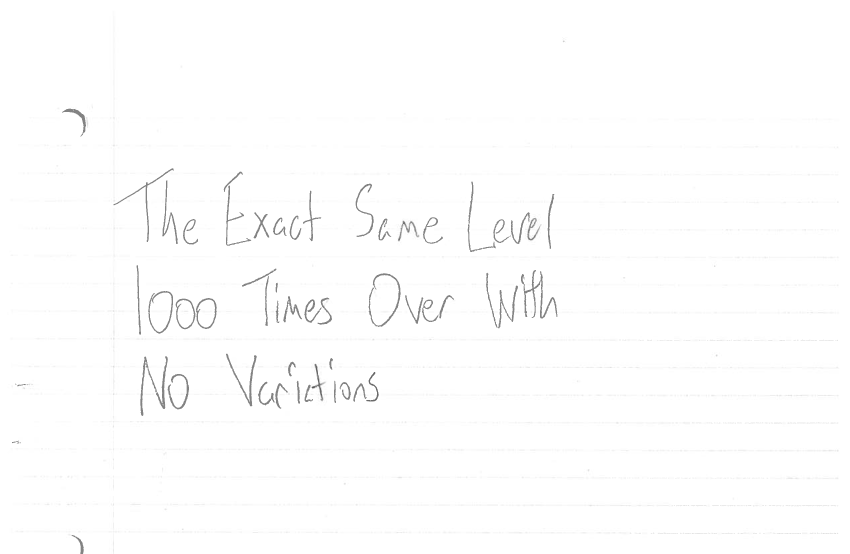 The Exact Same Level
1000 Times Over With
No Variations